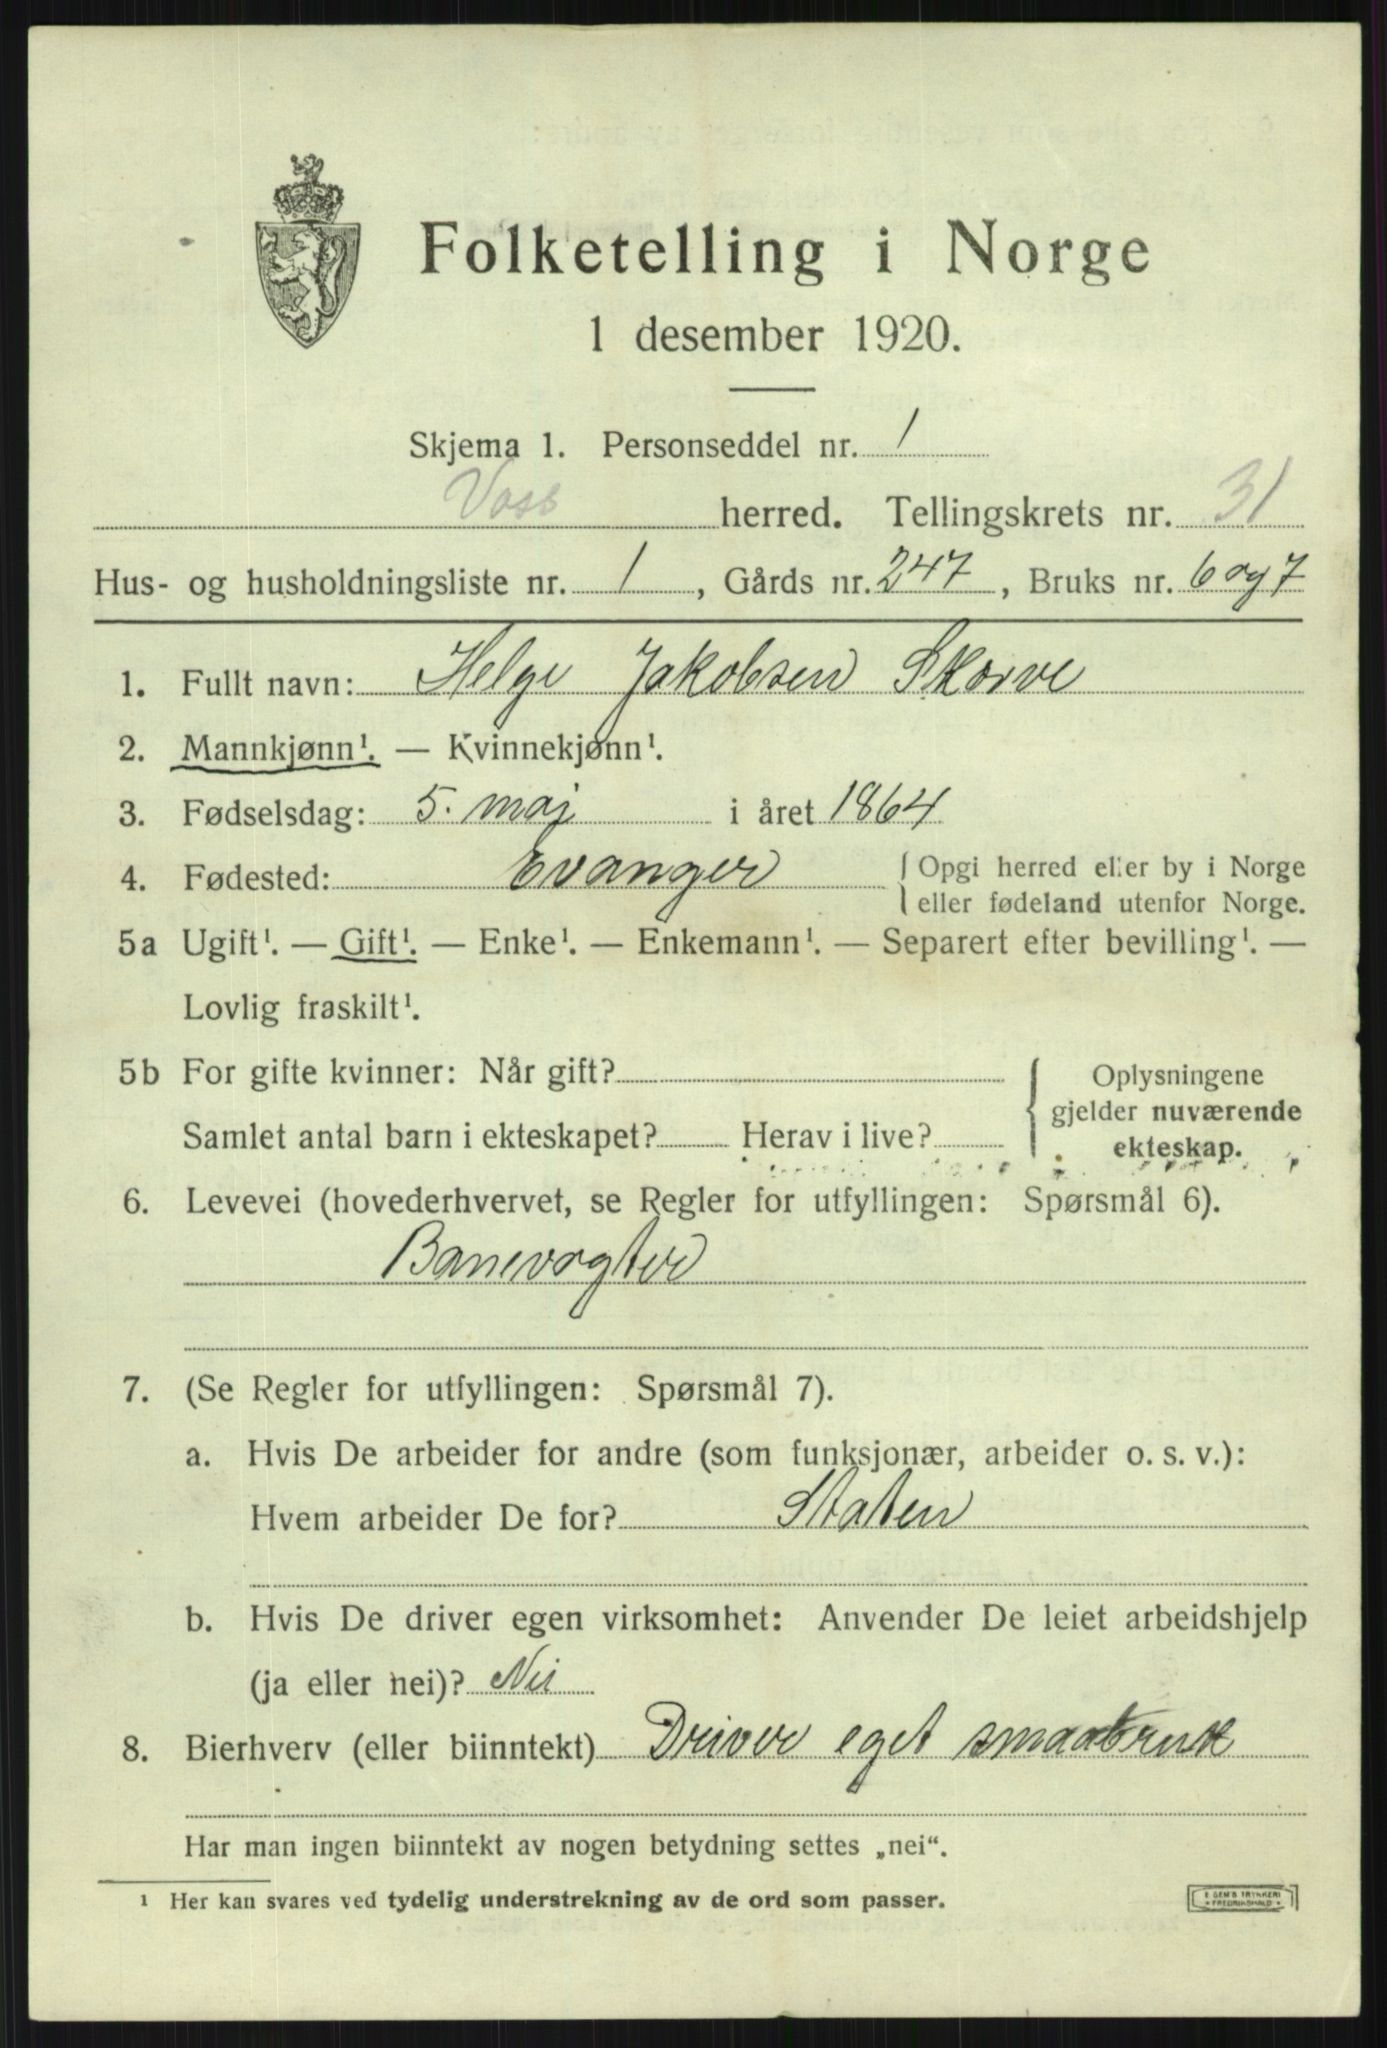 Folketelling i Norge
1 desember 1920.
Skjema 1. Personseddel nr. 1
Voss herred. Tellingskrets nr. 31
Hus- og husholdningsliste nr. 1, Gårds nr. 247, Bruks nr. 6 og 7
1. Fullt navn: Helge Jakobsen Skorve
2. Mannkjønn¹. — Kvinnekjønn¹.
3. Fødselsdag: 5. mai i året 1864
4. Fødested: Evanger { Opgi herred eller by i Norge
eller fødeland utenfor Norge.
5a Ugift¹. — Gift¹. — Enke¹. — Enkemann¹. — Separert efter bevilling¹. —
Lovlig fraskilt¹.
5b For gifte kvinner: Når gift? { Oplysningene
gjelder nuværende
Samlet antal barn i ekteskapet? Herav i live?
ekteskap.
6. Levevei (hovederhvervet, se Regler for utfyllingen: Spørsmål 6).
Banevogter
7. (Se Regler for utfyllingen: Spørsmål 7).
a. Hvis De arbeider for andre (som funksjonær, arbeider o. s. v.):
Hvem arbeider De for? Staten
b. Hvis De driver egen virksomhet: Anvender De leiet arbeidshjelp
(ja eller nei)? Nei
8. Bierhverv (eller biinntekt) Driver eget smaabruk
Har man ingen biinntekt av nogen betydning settes „nei“.
¹ Her kan svares ved tydelig understrekning av de ord som passer.
E SEM'S TRYKKERI
FREDRIKSHALD